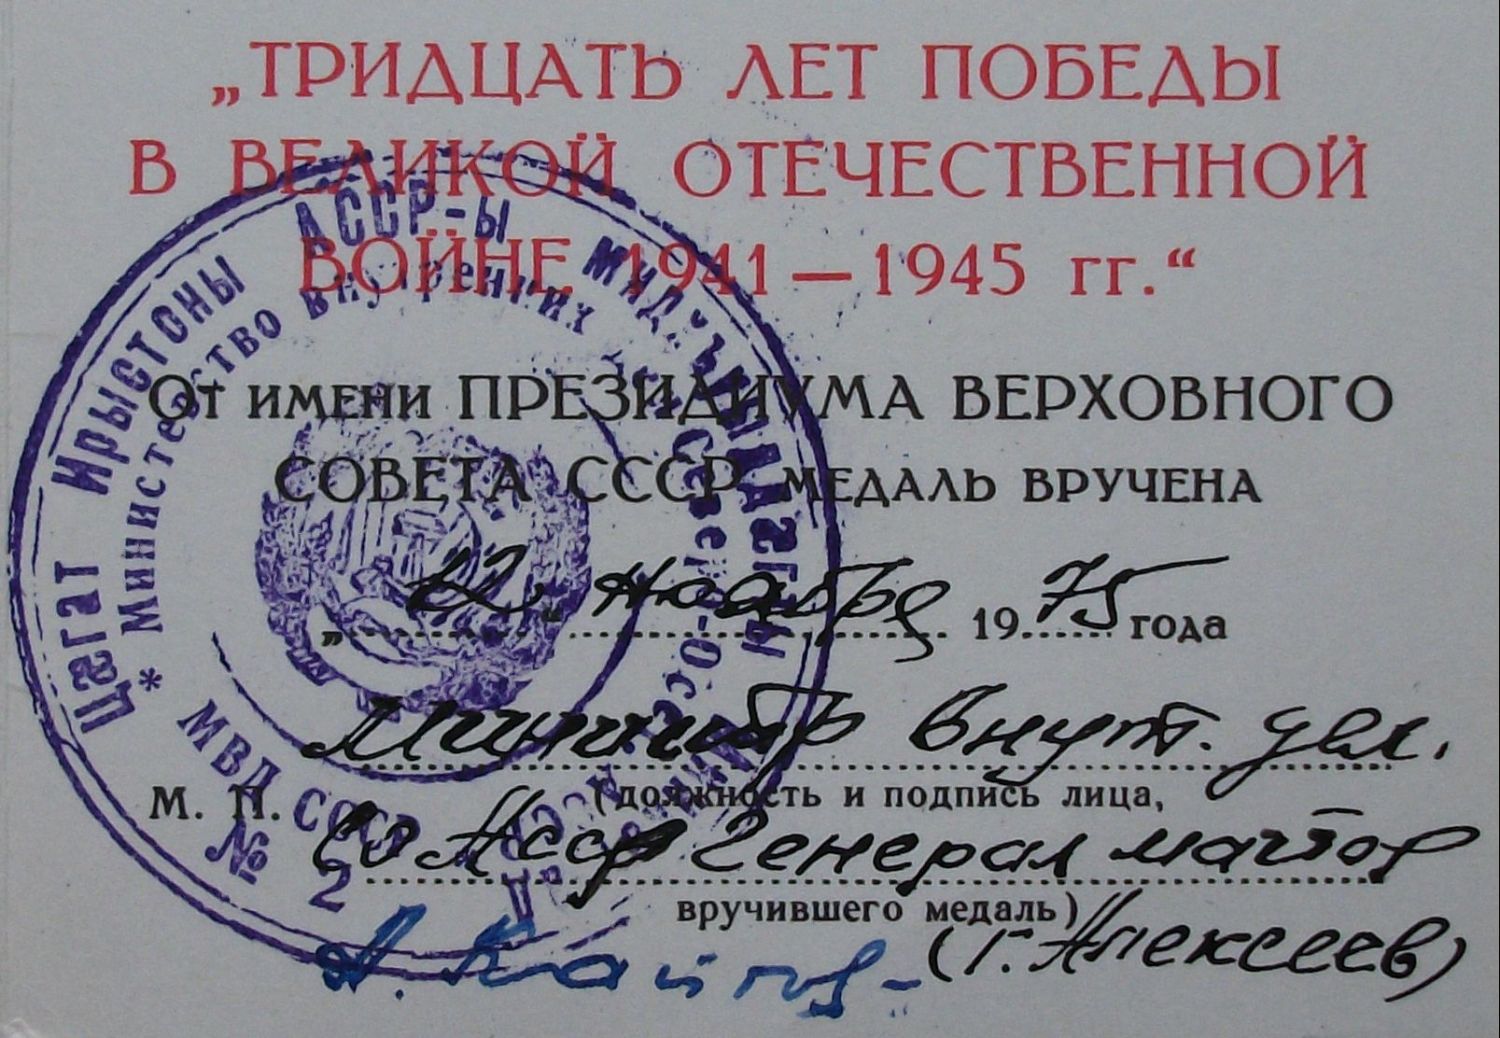 „ТРИДЦАТЬ ЛЕТ ПОБЕДЫ
В ВЕЛИКОЙ ОТЕЧЕСТВЕННОЙ
ВОЙНЕ 1941 — 1945 гг.“
От имени ПРЕЗИДИУМА ВЕРХОВНОГО
СОВЕТА СССР МЕДАЛЬ ВРУЧЕНА
„12“ ноября 1975 года
Министр внут. дел.
М. П. (должность и подпись лица,
СО АССР Генерал майор
вручившего медаль)
(Г. Алексеев)
Цæгат Ирыстоны АССР-ы
* Министерство внутренних дел Северо-Осетинской АССР
МВД СССР
№ 2